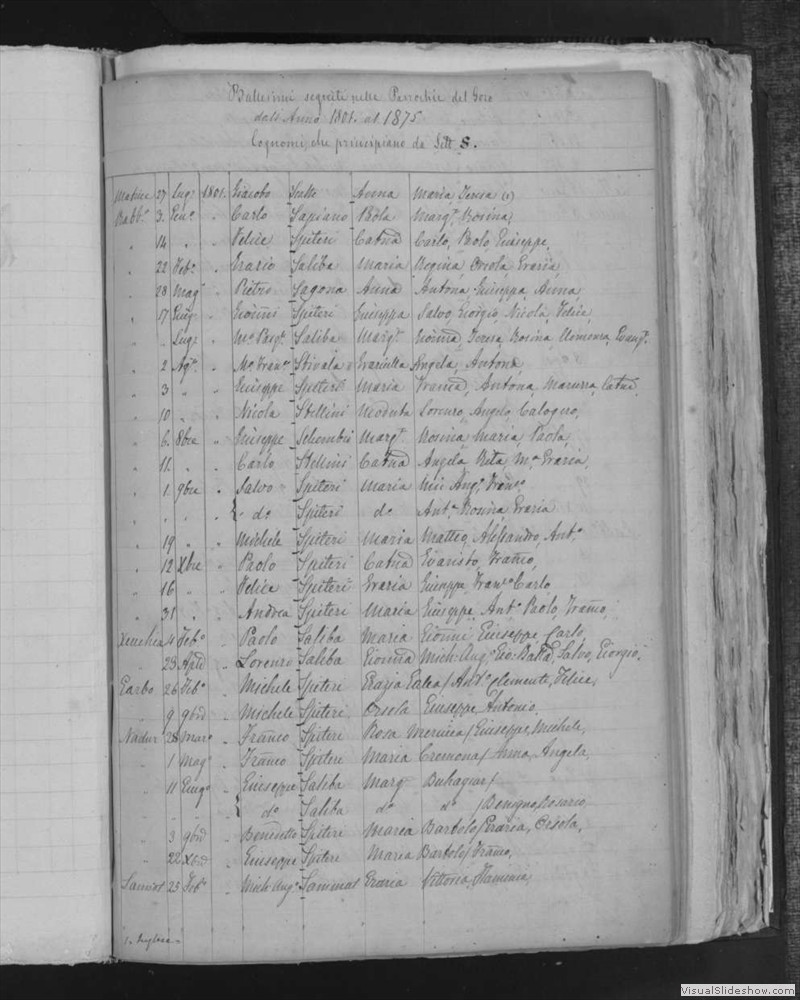 Battesimi seguiti nelle Parrochie del Gozo
dall'Anno 1801. al 1875
Cognomi, che principiano da Lett S.
Matrice 27 Lug: 1801. Giacobo Scott Anna Maria, Teresa (1)
Rabb.º 3. Gen.º " Carlo Sapiano Paola Marg.ª Rosina,
" 14 " " Felice Spiteri Catnā Carlo, Paolo, Giuseppe,
" 22 Feb.º " Saliba Maria Regina, Orsola, Grazia,
" 28 Mag.º " Pietro Sagona Anna Antona, Giuseppa, Anna,
" 17 Giug. " Gioñni Spiteri Giuseppa Salvo, Giorgio, Nicola, Felice
" " Lug: " Saliba Marg.ª Teresa, Rosina,
" 2 Ag.º " Stivala Angela, Antona,
" 3 " " Giuseppe Spiteri Maria Antona, Catnā,
" 10 " " Nicola Stellini Modesta Lorenzo, Angelo, Calogero,
" 6. 8bre " Giuseppe Schembri Marg.ª Rosina, Maria, Paola,
" 11. " " Carlo Stellini Catnā Angela, Rita, M.ª Grazia,
" 1. 9bre " Salvo Spiteri Maria Ang.º Fran.co
" " " { dº Spiteri dº Ant.ª Rosina, Grazia
" 19 " " Michele Spiteri Maria Matteo, Alessandro, Ant.º
" 12 Xbre " Paolo Spiteri Catnā Evaristo, Frañco,
" 16 " " Felice Spiteri Grazia Giuseppa, Fran.co Carlo
" 31 " " Andrea Spiteri Maria Giuseppe, Ant.º Paolo, Frañco,
Xeuchia 4 Feb.º " Paolo Saliba Maria Gioñni, Giuseppe, Carlo,
" 23 Aple " Lorenzo Saliba Gioñna Mich: Ang.º Gio: Batta, Salvo, Giorgio,
Garbo 26 Feb.º " Michele Spiteri Grazia Galea / Ant.º Clemente, Felice,
" 9 9bre " Michele Spiteri Orsola Giuseppe, Antonio,
Nadur 28 Marº " Frañco Spiteri Rosa Mercieca / Giuseppe, Michele,
" 1 Mag.º " Frañco Spiteri Maria Cremona / Anna, Angela,
" 11 Giugº " Giuseppe Saliba Marg.ª Buhagiar /
" " " { dº Saliba dº dº / Benigno, Rosario,
" 3 9bre " Benedetto Spiteri Maria Bartolo / Grazia, Orsola,
" 22 Xbre " Giuseppe Spiteri Maria Bartolo / Frañco,
Sannat 25 Feb.º " Mich: Ang.º Sammut Grazia Vittoria, Flaminia,
1. Inglese
VisualSlideshow.com